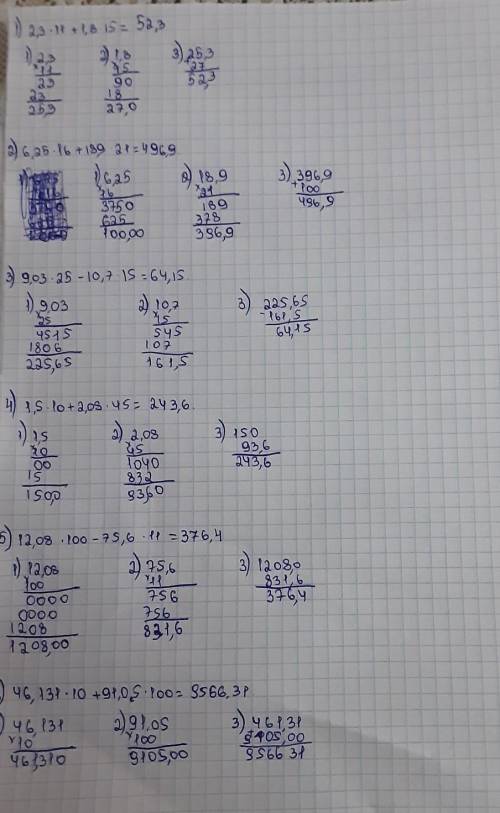 1) 2,3 · 11 + 1,8 · 15 = 52,3
1) 2,3 2) 1,8 3) 25,3
×11 ×15 +27
23 90 52,3
23 18
25,3 27,0
2) 6,25 · 16 + 18,9 · 21 = 496,9
1) 6,25 2) 18,9 3) 396,9
×16 ×21 +100
3750 189 496,9
625 378
100,00 396,9
3) 9,03 · 25 - 10,7 · 15 = 64,15
1) 9,03 2) 10,7 3) 225,65
×25 ×15 -161,5
4515 545 64,15
1806 107
225,65 161,5
4) 1,5 · 10 + 2,08 · 45 = 243,6
1) 1,5 2) 2,08 3) 150
×10 ×45 93,6
00 1040 243,6
15 832
150,0 93,60
5) 12,08 · 100 - 75,6 · 11 = 376,4
1) 12,08 2) 75,6 3) 1208,0
100 ×11 831,6
0000 756 376,4
0000 756
1208 831,6
1208,00
) 46,131 · 10 + 91,05 · 100 = 9566,31
) 46,131 2) 91,05 3) 461,31
×10 ×100 9105,00
461,310 9105,00 956631